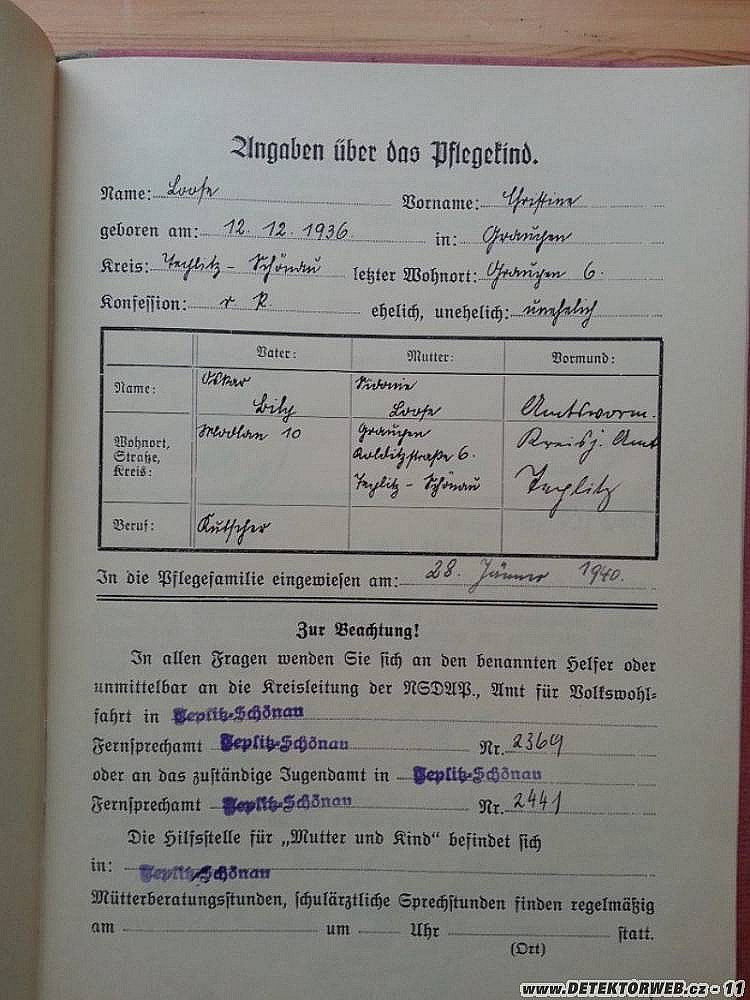 Angaben über das Pflegekind.
Name: Loose Vorname: Christine
geboren am: 12. 12. 1936. in: Graupen
Kreis: Teplitz - Schönau letzter Wohnort: Graupen 6.
Konfession: r. k. ehelich, unehelich: unehelich
Vater: Mutter: Vormund:
Name: Oskar Bily Sidonie Loose Amtsvorm.
Wohnort, Straße, Kreis: Modlan 10 Graupen Kolditzstraße 6. Teplitz - Schönau Kreisj. Amt Teplitz
Beruf: Kutscher
In die Pflegefamilie eingewiesen am: 28. Jänner 1940.
Zur Beachtung!
In allen Fragen wenden Sie sich an den benannten Helfer oder
unmittelbar an die Kreisleitung der NSDAP., Amt für Volkswohl-
fahrt in Teplitz-Schönau
Fernsprechamt Teplitz-Schönau Nr. 2369
oder an das zuständige Jugendamt in Teplitz-Schönau
Fernsprechamt Teplitz-Schönau Nr. 2441
Die Hilfsstelle für „Mutter und Kind" befindet sich
in: Teplitz-Schönau
Mütterberatungsstunden, schulärztliche Sprechstunden finden regelmäßig
am um Uhr statt.
(Ort)
www.DETEKTORWEB.cz - 11